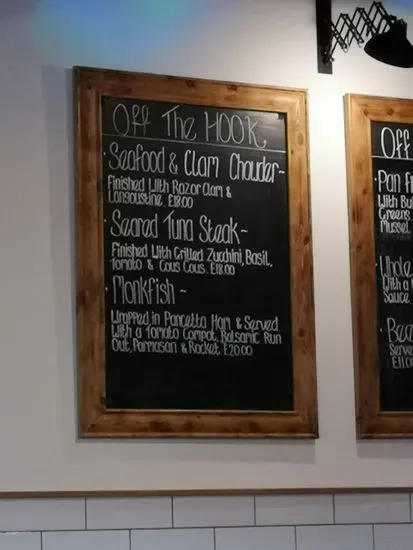 Off The HOOK
Seafood & Clam Chauder~
Finished With Razor Clam &
Langoustine. £18.00
Seared Tuna Steak~
Finished With Grilled Zucchini, Basil,
Tomato & Cous Cous. £18.00
Monkfish ~
Wrapped in Pancetta Ham & Served
With a Tomato Compot, Balsamic Run
Out, Parmasan & Rocket £20.00
Off
Pan Fr
With Bu
Greens
Mussel
Whole
With a
Sauce
Served
£11.00